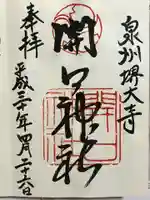 泉州堺大寺
開口神社
奉拝
平成三十年四月二十六日